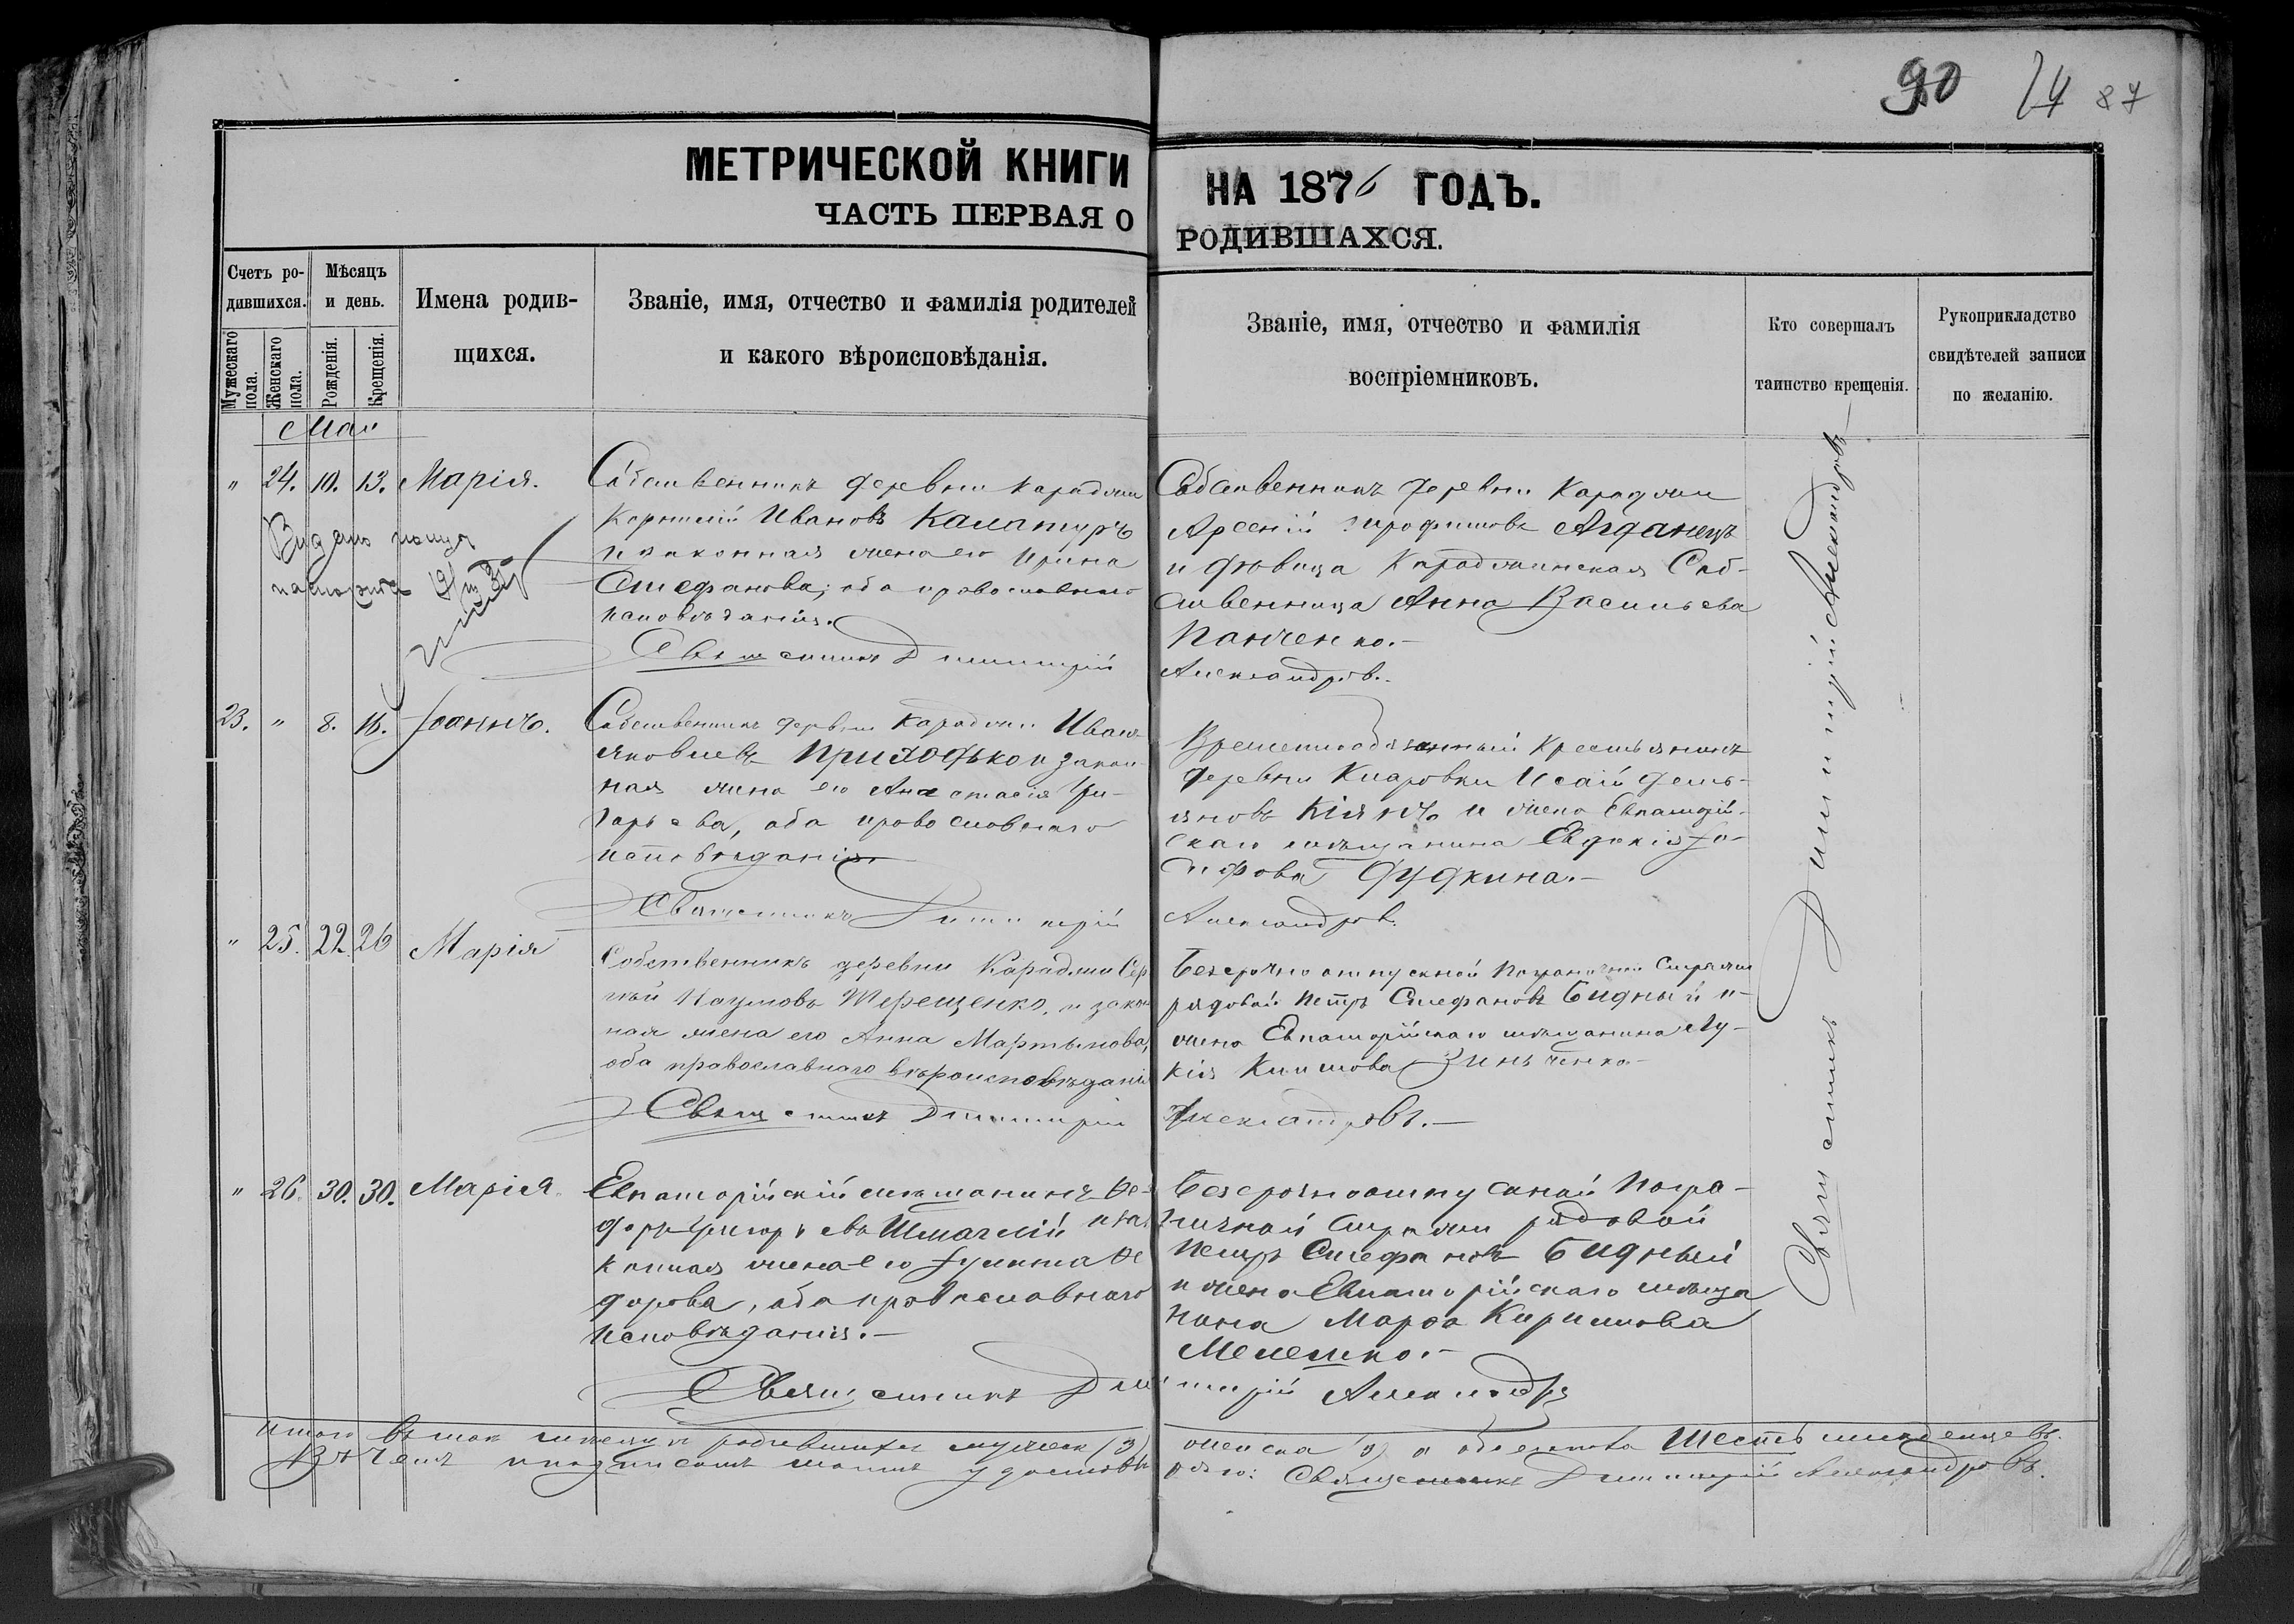 90 24 87
МЕТРИЧЕСКОЙ КНИГИ НА 1876 ГОДЪ.
ЧАСТЬ ПЕРВАЯ О РОДИВШАХСЯ.
Счетъ ро-
дившихся.
Мужескаго пола.
Женскаго пола.
Мѣсяцъ
и день.
Рожденія.
Крещенія.
Имена родив-
щихся.
Званіе, имя, отчество и фамилія родителей
и какого вѣроисповѣданія.
Званіе, имя, отчество и фамилія
воспріемниковъ.
Кто совершалъ
таинство крещенія.
Рукоприкладство
свидѣтелей записи
по желанію.
Май
" 24. 10. 13. Марія.
Собственникъ деревни Караджи
Корнилій Ивановъ Каламуръ
и законная жена его Ирина
Стефанова; оба православнаго
исповѣданія.
Священникъ Димитрій
Собственникъ деревни Караджи
Арсеній Трофимовъ
и девица Караджинская Соб-
ственница Анна Васильева
Панченко.-
Александров.
Видано
паспорта
23. " 8. 16. Іоаннъ.
Собственникъ деревни Караджи Иванъ
Яковлевъ Приходько и закон-
ная жена его Анастасія Гри-
горьева, оба православнаго
исповѣданія.
Священникъ Димитрій
Временнообязанный крестьянинъ
деревни Кларовки Исай Демь-
яновъ Кіянъ и жена Евпаторій-
скаго мѣщанина Евдокія Іо-
сифова Дудкина.-
Александров.
" 25. 22. 26 Марія
Собственникъ деревни Караджи Сер-
гѣй Наумовъ Терещенко, и закон-
ная жена его Анна Мартынова,
оба православнаго вѣроисповѣданія
Священникъ Димитрій
Безсрочно отпускной Пограничной Стражи
рядовой Петръ Стефановъ Бидный и
жена Евпаторійскаго мѣщанина Лу-
кія Климова Зинченко
Александровъ.-
" 26. 30. 30. Марія.
Евпаторійскій мѣщанинъ Ѳе-
доръ Григорьевъ Шмаглій и за-
конная жена его Іулитта Ѳе
дорова, оба православнаго
исповѣданія.-
Священникъ Дми
Безсрочноотпускной Погра-
ничной Стражи рядовой
Петръ Стефановъ Бидный
и жена Евпаторійскаго мѣща
нина Марѳа Киримова
Мелешко.-
трій Александр
Итого въ мая мѣсяцѣ родившихся мужеск (3) женска (3) а обоего пола Шесть младенцевъ.
В чемъ и подписомъ моимъ удостовѣряю: Священникъ Димитрій Александровъ.
Священникъ Димитрій Александровъ